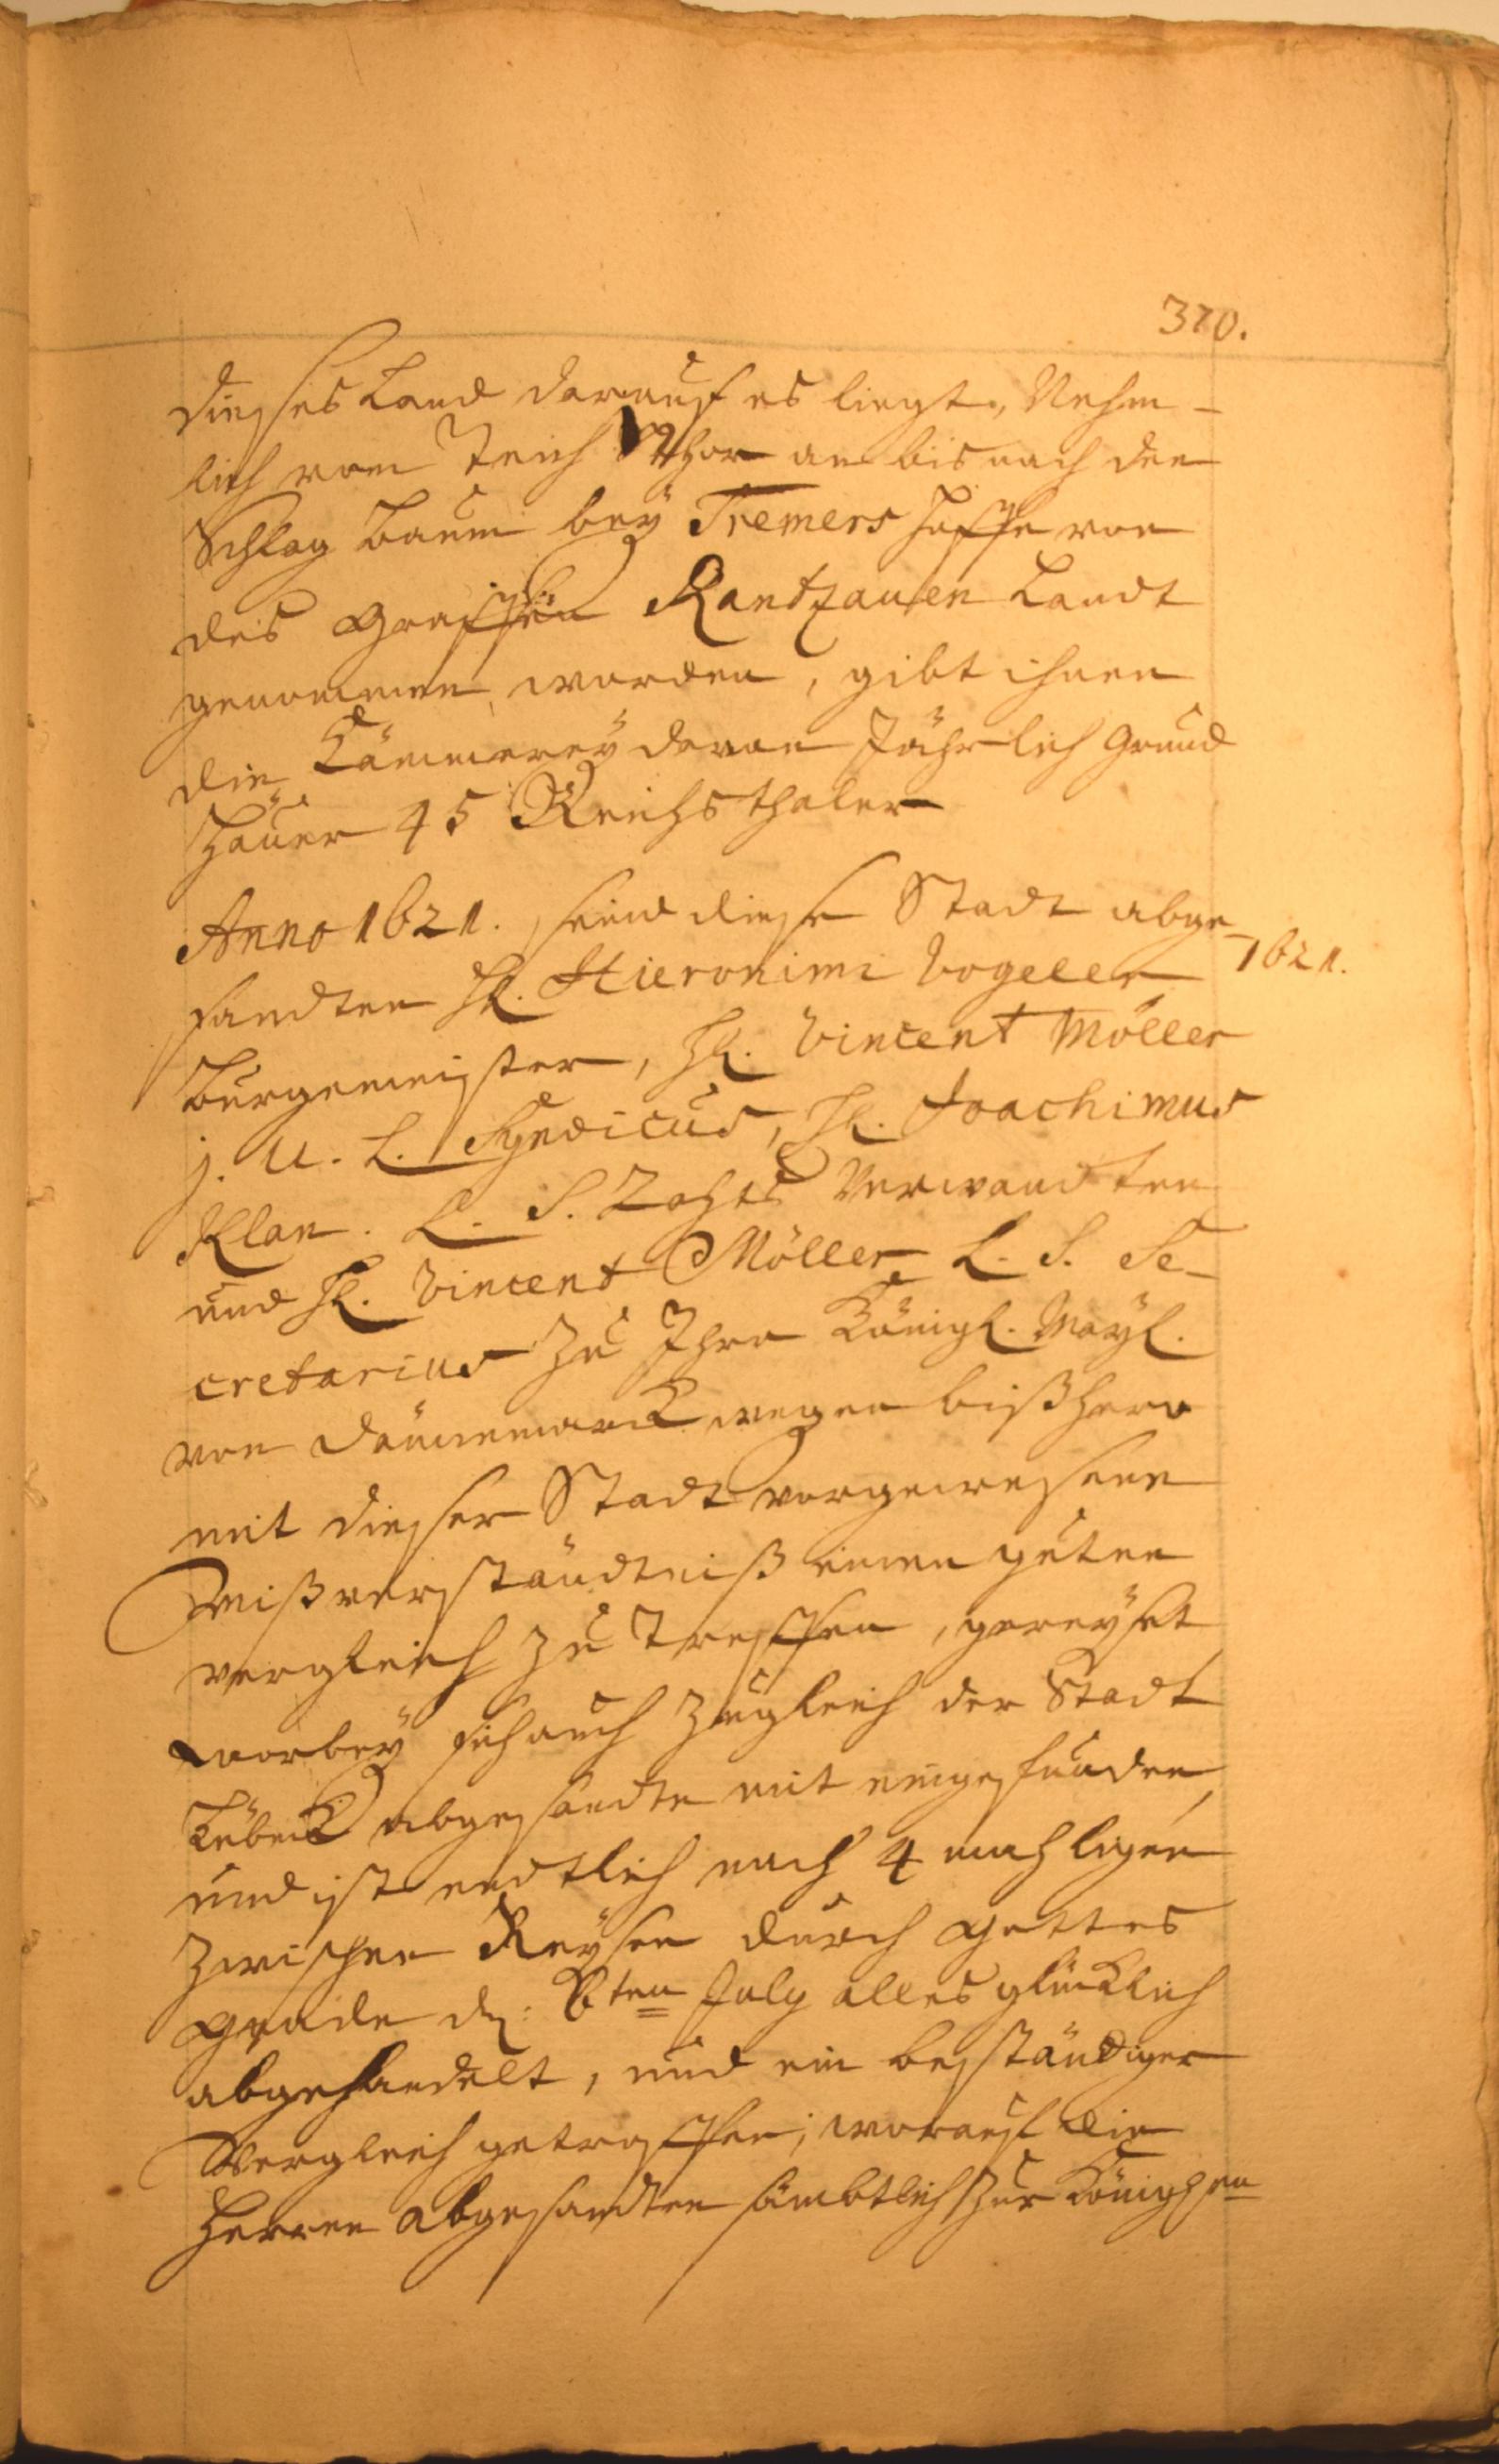 370.
dieses Land darauf es liegt, Nehm-
lich vom Teich Thor an bis nach den
Schlag Baum bey Tremers Hoffe von
des Graffen Rantzauen Landt
genommen worden, gibt ihnen
die Cämmerey davon Jährlich Grund
Häuer 45 Reichsthaler
Anno 1621. sein diese Stadt abge-
1621.
sandten H. Hieronimi Vogeler
Burgemeister, H. Vincent Möller
j. U. L. Syndicus, H. Joachimus
Klan. L. S. Rahts Verwandten
und H. Vincent Möller L. S. Se-
cretarius zu Ihro Königl. Mayl.
von Dännemarck wegen bißhero
mit dieser Stadt vorgewesenen
Mißverständtniß einen guten
vergleich zu treffen, gereyset
worbey sich auch zugleich der Stadt
Lübeck abgesandte mit eingefunden,
und ist endtlich nach 4 mahligen
zwischen Reysen durch Gottes
Gnade d. 8ten July alles glücklich
abgehandelt, und ein beständiger
Vergleich getroffen; worauf die
Herren Abgesandten sämbtlich zur Königlen